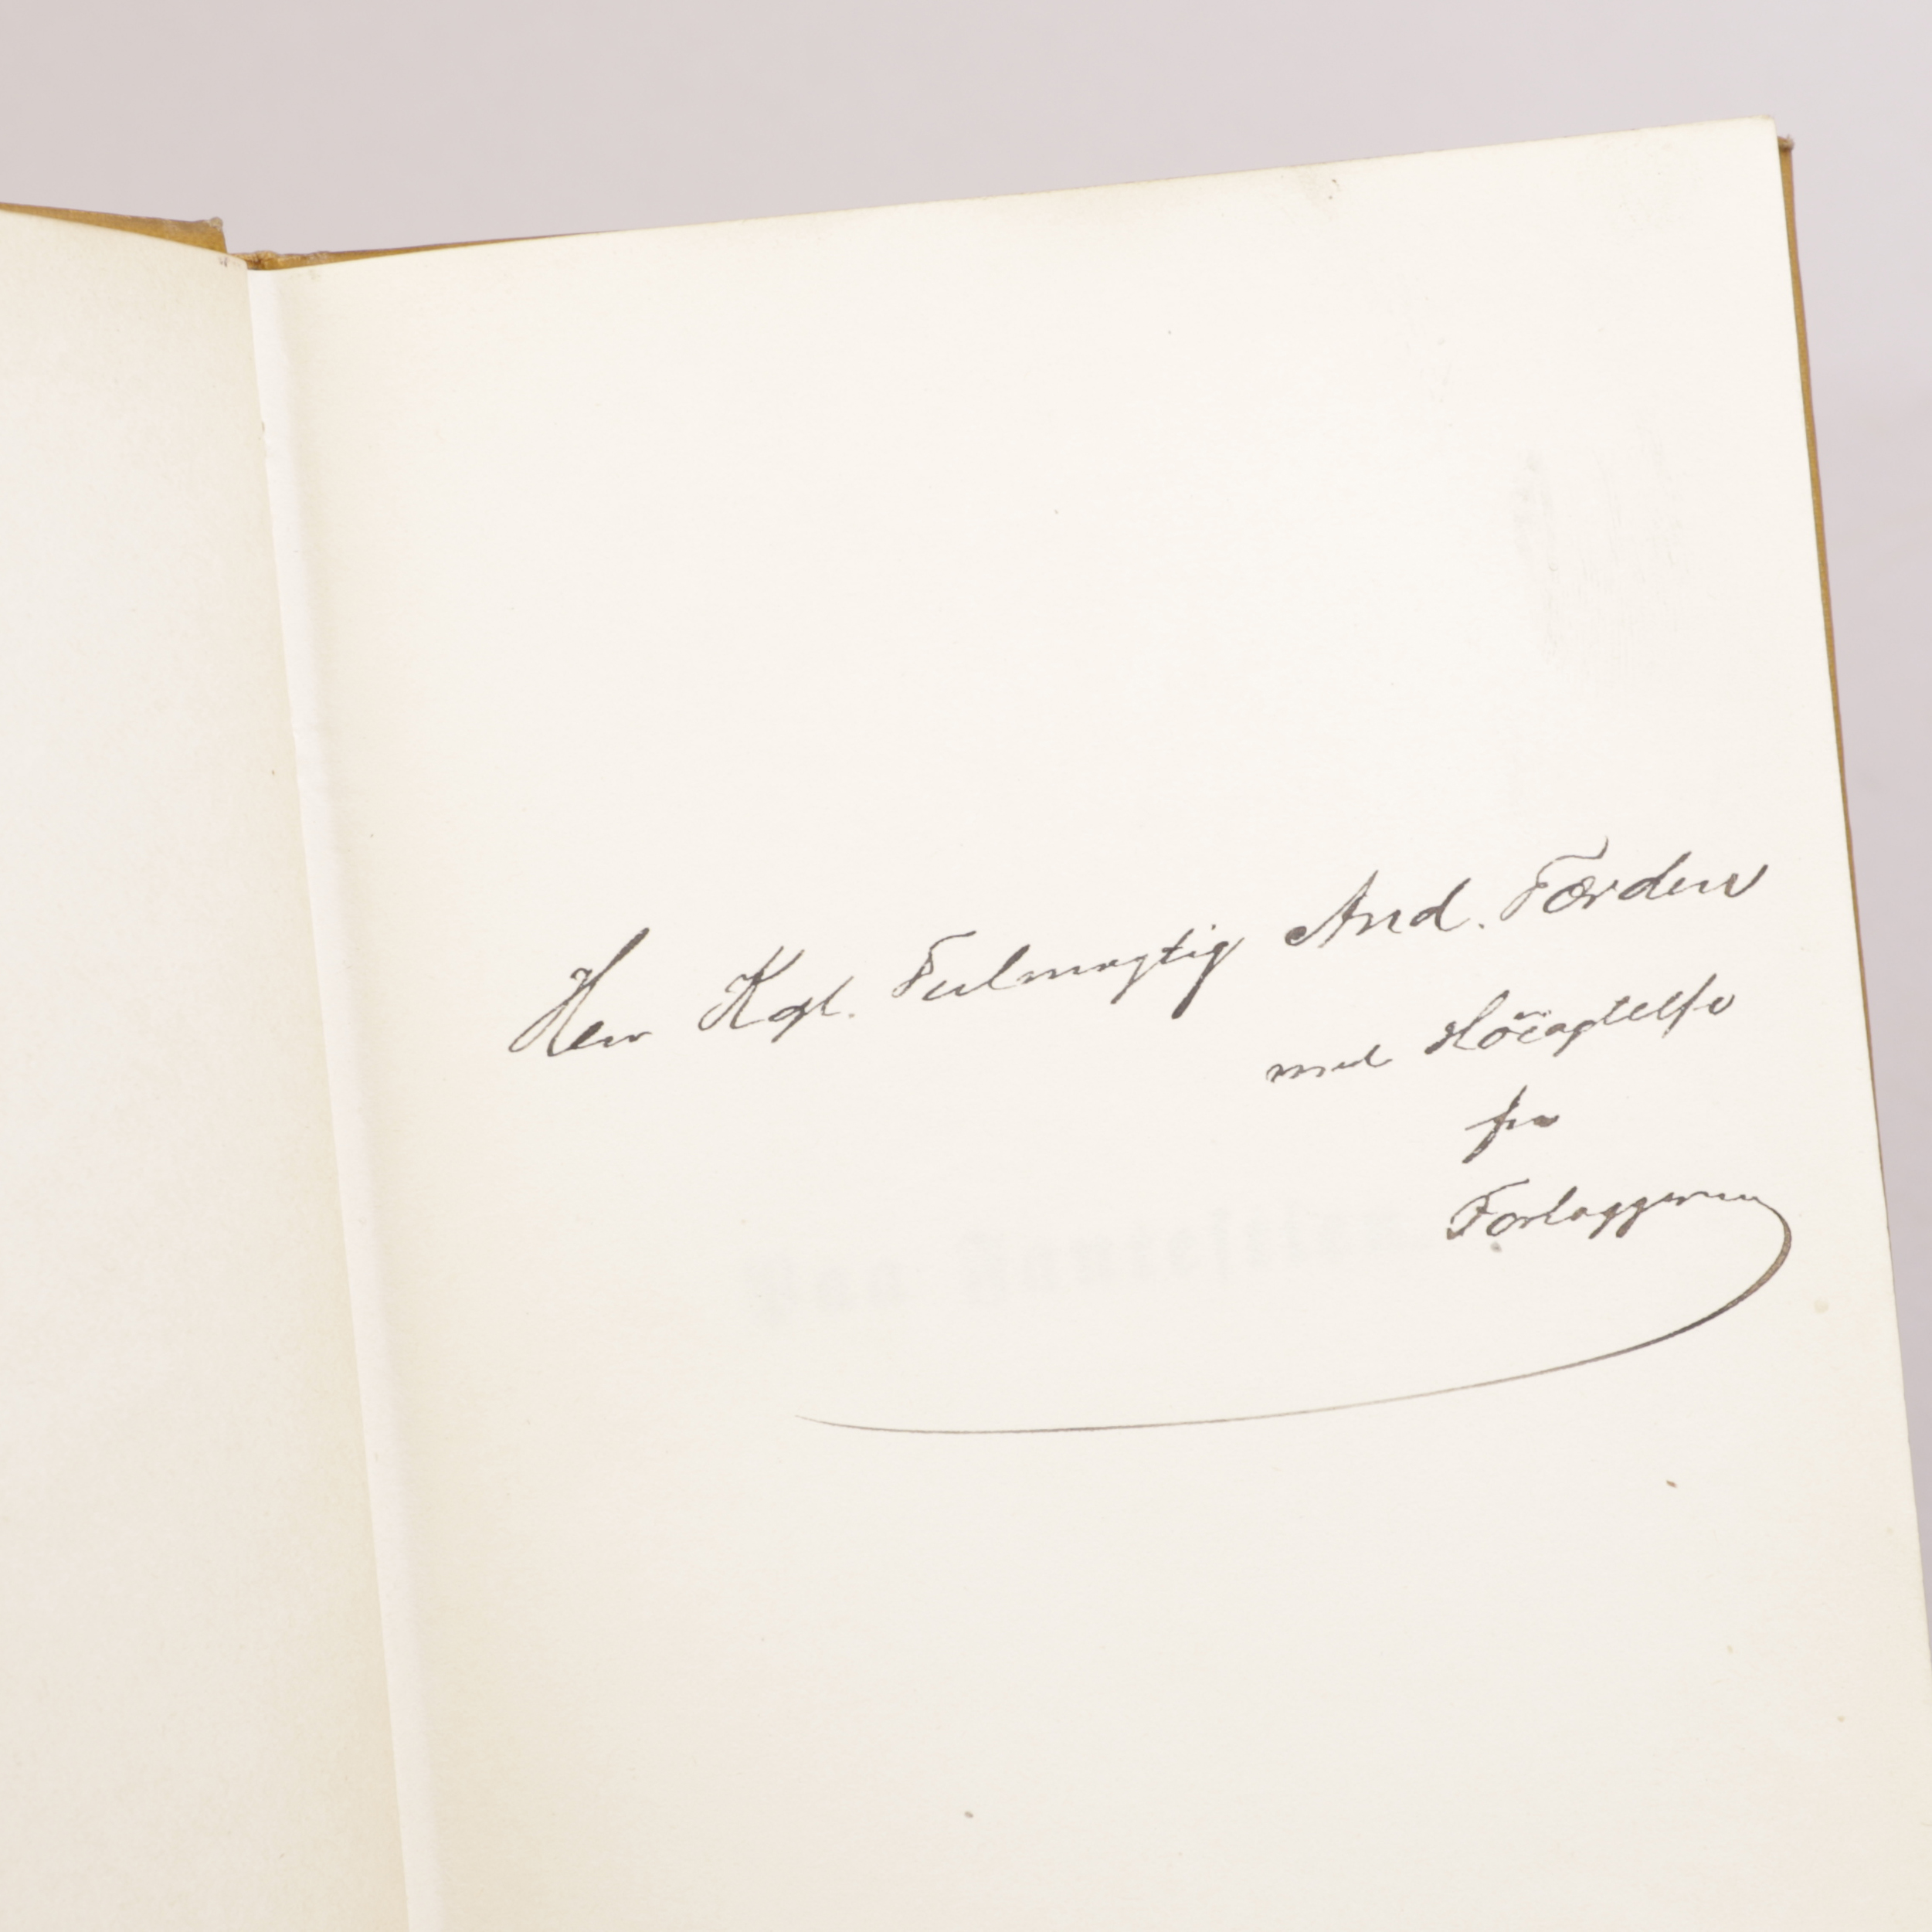 Herr Kgl. Fulmægtig And. Færden
med Höiagtelse
fra
Forlæggerne